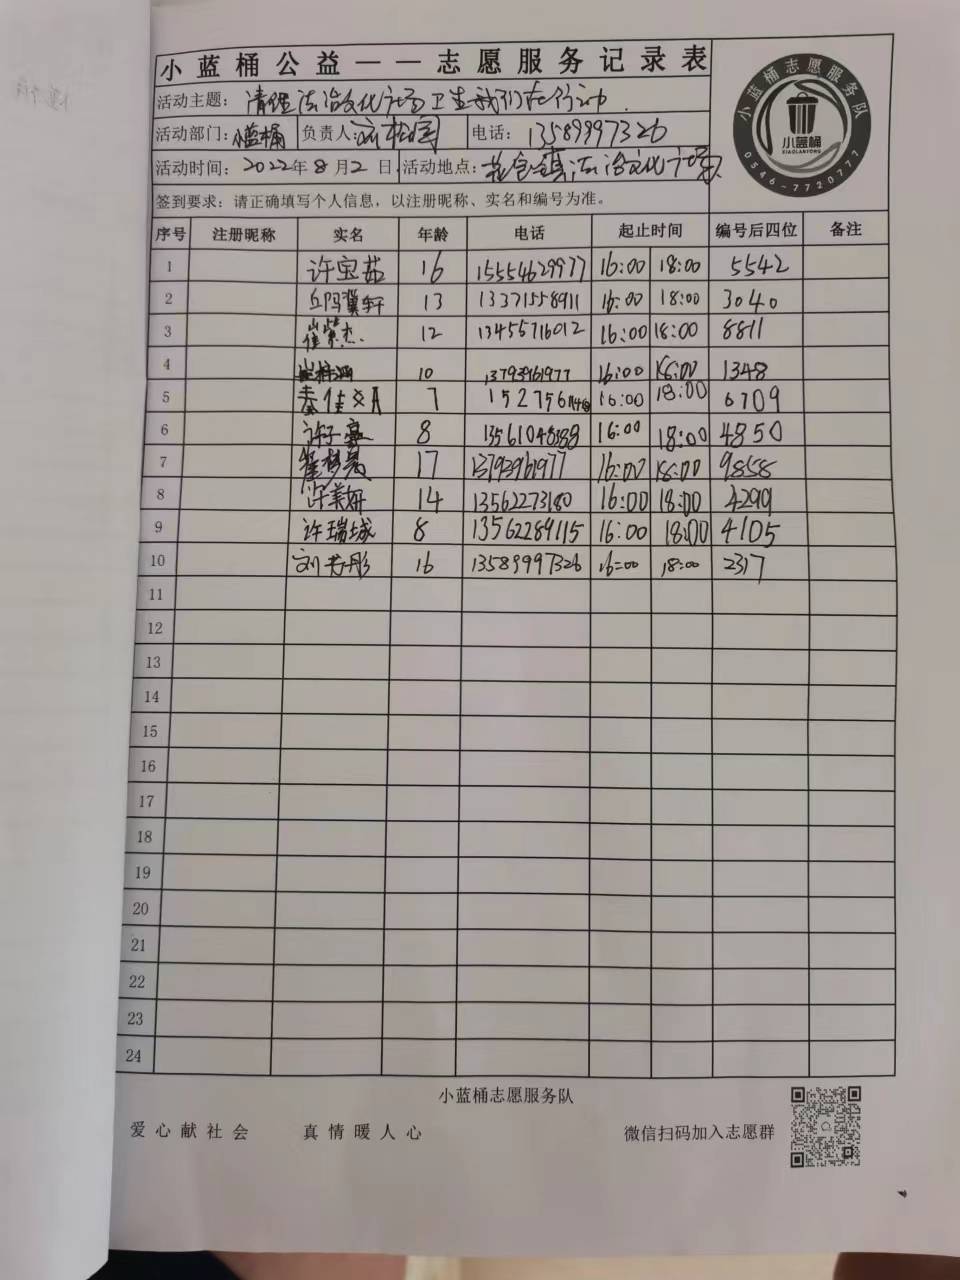 小蓝桶公益——志愿服务记录表
活动主题: 清理法治文化广场卫生我们在行动.
活动部门: 小蓝桶 负责人: 电话: 13589997326
活动时间: 2022年8月2日 活动地点: 法治文化广场.
签到要求: 请正确填写个人信息，以注册昵称、实名和编号为准。
小蓝桶志愿服务队
小蓝桶
XIAOLANTONG
0546-7720777
序号 注册昵称 实名 年龄 电话 起止时间 编号后四位 备注
1 许宝茹 16 15554629977 16:00 18:00 5542
2 轩 13 13371558911 16:00 18:00 3040
3 崔紫杰 12 13455716012 16:00 18:00 8811
4 10 13793961977 16:00 18:00 1348
5 秦佳 7 16:00 18:00 6709
6 许子豪 8 16:00 18:00 4850
7 崔梦晨 17 13793961977 16:00 18:00 9858
8 许美妍 14 13562273180 16:00 18:00 4299
9 许瑞城 8 13562289115 16:00 18:00 4105
10 刘芳彤 16 13589997326 16:00 18:00 2317
11
12
13
14
15
16
17
18
19
20
21
22
23
24
小蓝桶志愿服务队
爱心献社会 真情暖人心 微信扫码加入志愿群